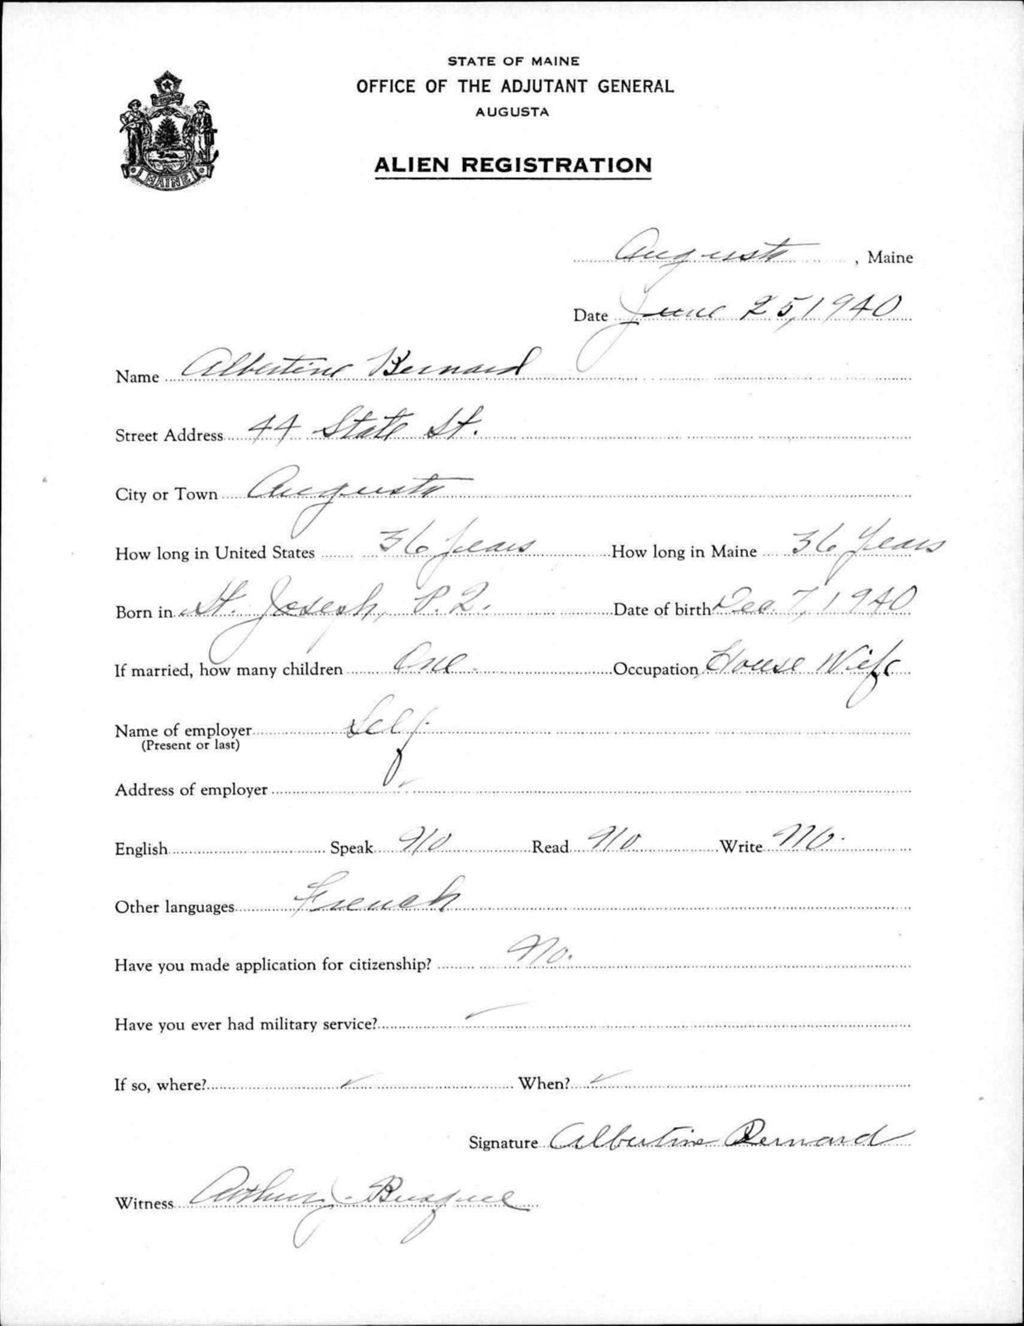 STATE OF MAINE
OFFICE OF THE ADJUTANT GENERAL
AUGUSTA
ALIEN REGISTRATION
MAINE
Augusta, Maine
Date June 25, 1940
Name Albertine Bernard
Street Address 44 State St.
City or Town Augusta
How long in United States 36 years How long in Maine 36 Years
Born in St. Joseph, P.Q. Date of birth Dec. 7, 1940
If married, how many children One Occupation House Wife
Name of employer Self
(Present or last)
Address of employer
English Speak No Read No Write No.
Other languages French
Have you made application for citizenship? No.
Have you ever had military service?
If so, where? When?
Signature Albertine Bernard
Witness Arthur J.